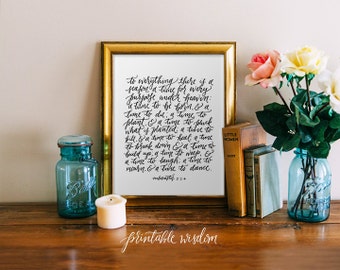 to everything there is a
season, a time for every
purpose under heaven:
a time to be born, & a
time to die, a time to
plant, & a time to pluck
what is planted, a time to
kill, & a time to heal, a time
to break down & a time to
build up, a time to weep, &
a time to laugh, a time to
mourn, & a time to dance.
printable wisdom